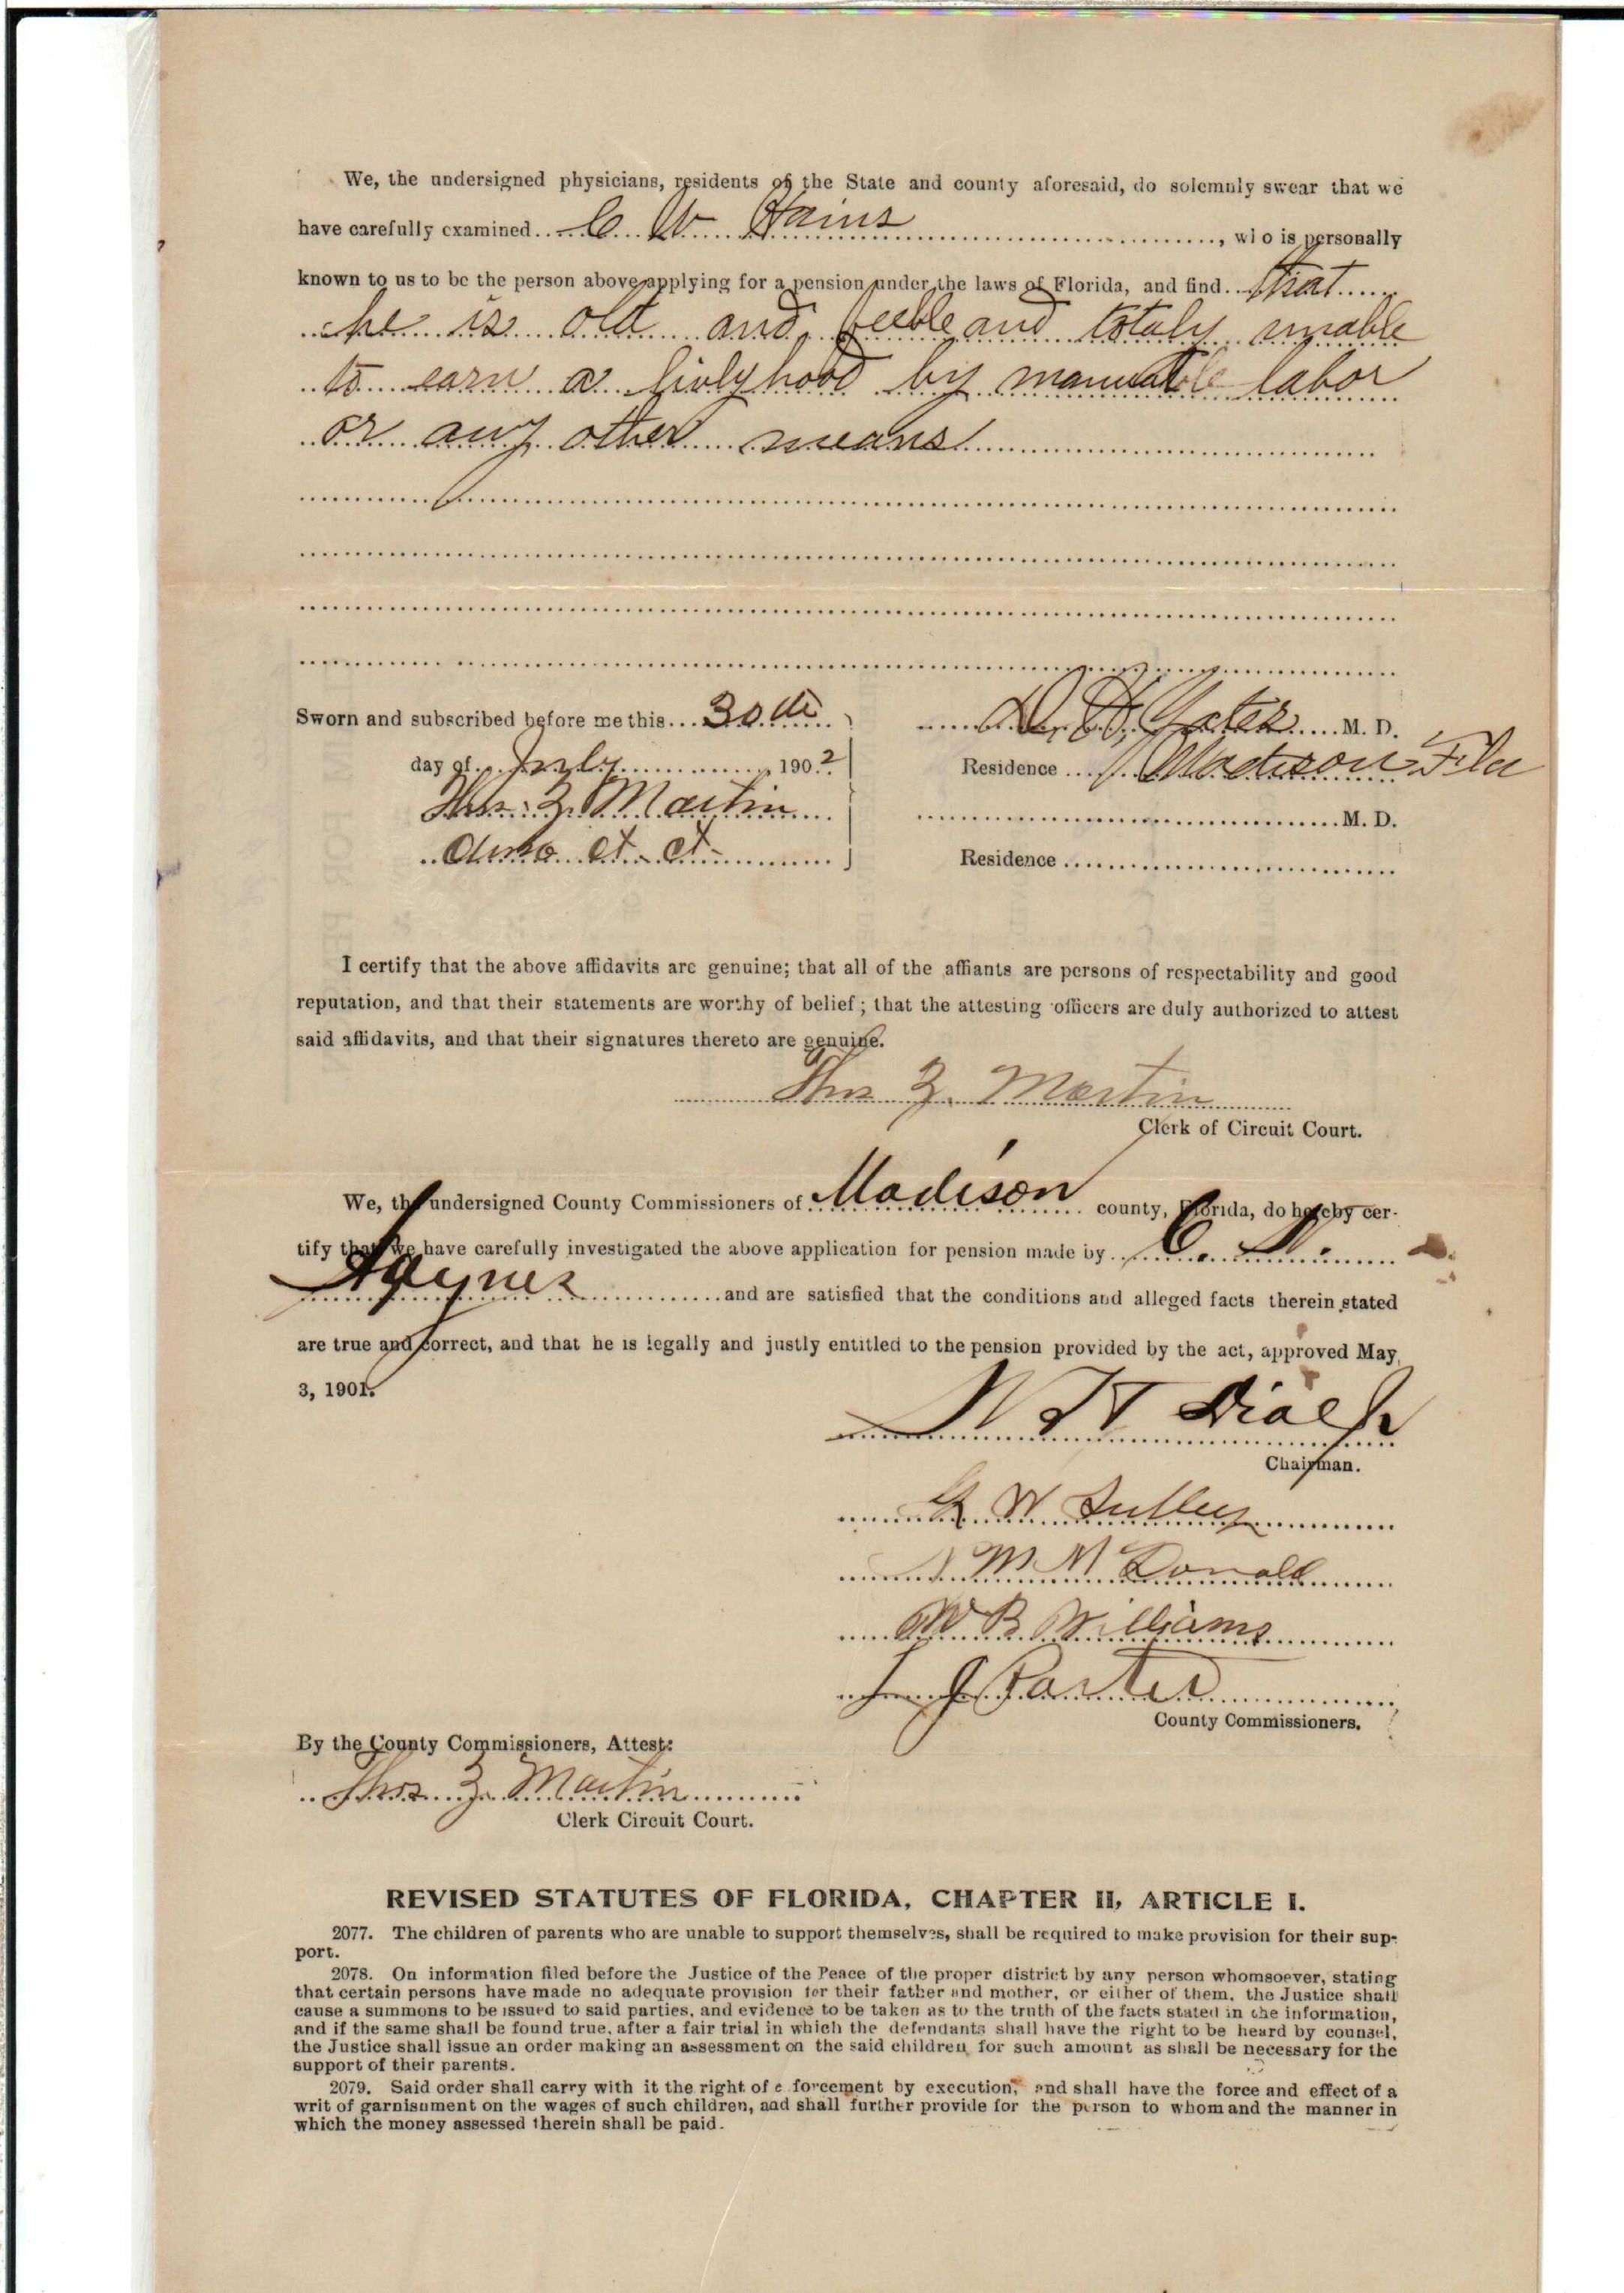 We, the undersigned physicians, residents of the State and county aforesaid, do solemnly swear that we
have carefully examined C W Hains, who is personally
known to us to be the person above applying for a pension under the laws of Florida, and find that
he is old and feeble and totaly unable
to earn a livlyhood by manual labor
or any other means
Sworn and subscribed before me this 30th
day of July, 1902
Thos. Z. Martin
Clerk Ct. Ct.
D. H. Yates M. D.
Residence Madison Fla
M. D.
Residence
I certify that the above affidavits are genuine; that all of the affiants are persons of respectability and good
reputation, and that their statements are worthy of belief; that the attesting officers are duly authorized to attest
said affidavits, and that their signatures thereto are genuine.
Thos Z. Martin
Clerk of Circuit Court.
We, the undersigned County Commissioners of Madison county, Florida, do hereby cer-
tify that we have carefully investigated the above application for pension made by C. W.
Haynes and are satisfied that the conditions and alleged facts therein stated
are true and correct, and that he is legally and justly entitled to the pension provided by the act, approved May
3, 1901.
Chairman.
W
M McDonald
W B Williams
J Porter
County Commissioners.
By the County Commissioners, Attest:
Thos Z. Martin
Clerk Circuit Court.
REVISED STATUTES OF FLORIDA, CHAPTER II, ARTICLE I.
2077. The children of parents who are unable to support themselves, shall be required to make provision for their sup-
port.
2078. On information filed before the Justice of the Peace of the proper district by any person whomsoever, stating
that certain persons have made no adequate provision for their father and mother, or either of them, the Justice shall
cause a summons to be issued to said parties, and evidence to be taken as to the truth of the facts stated in the information,
and if the same shall be found true, after a fair trial in which the defendants shall have the right to be heard by counsel,
the Justice shall issue an order making an assessment on the said children for such amount as shall be necessary for the
support of their parents.
2079. Said order shall carry with it the right of e forcement by execution, and shall have the force and effect of a
writ of garnishment on the wages of such children, and shall further provide for the person to whom and the manner in
which the money assessed therein shall be paid.